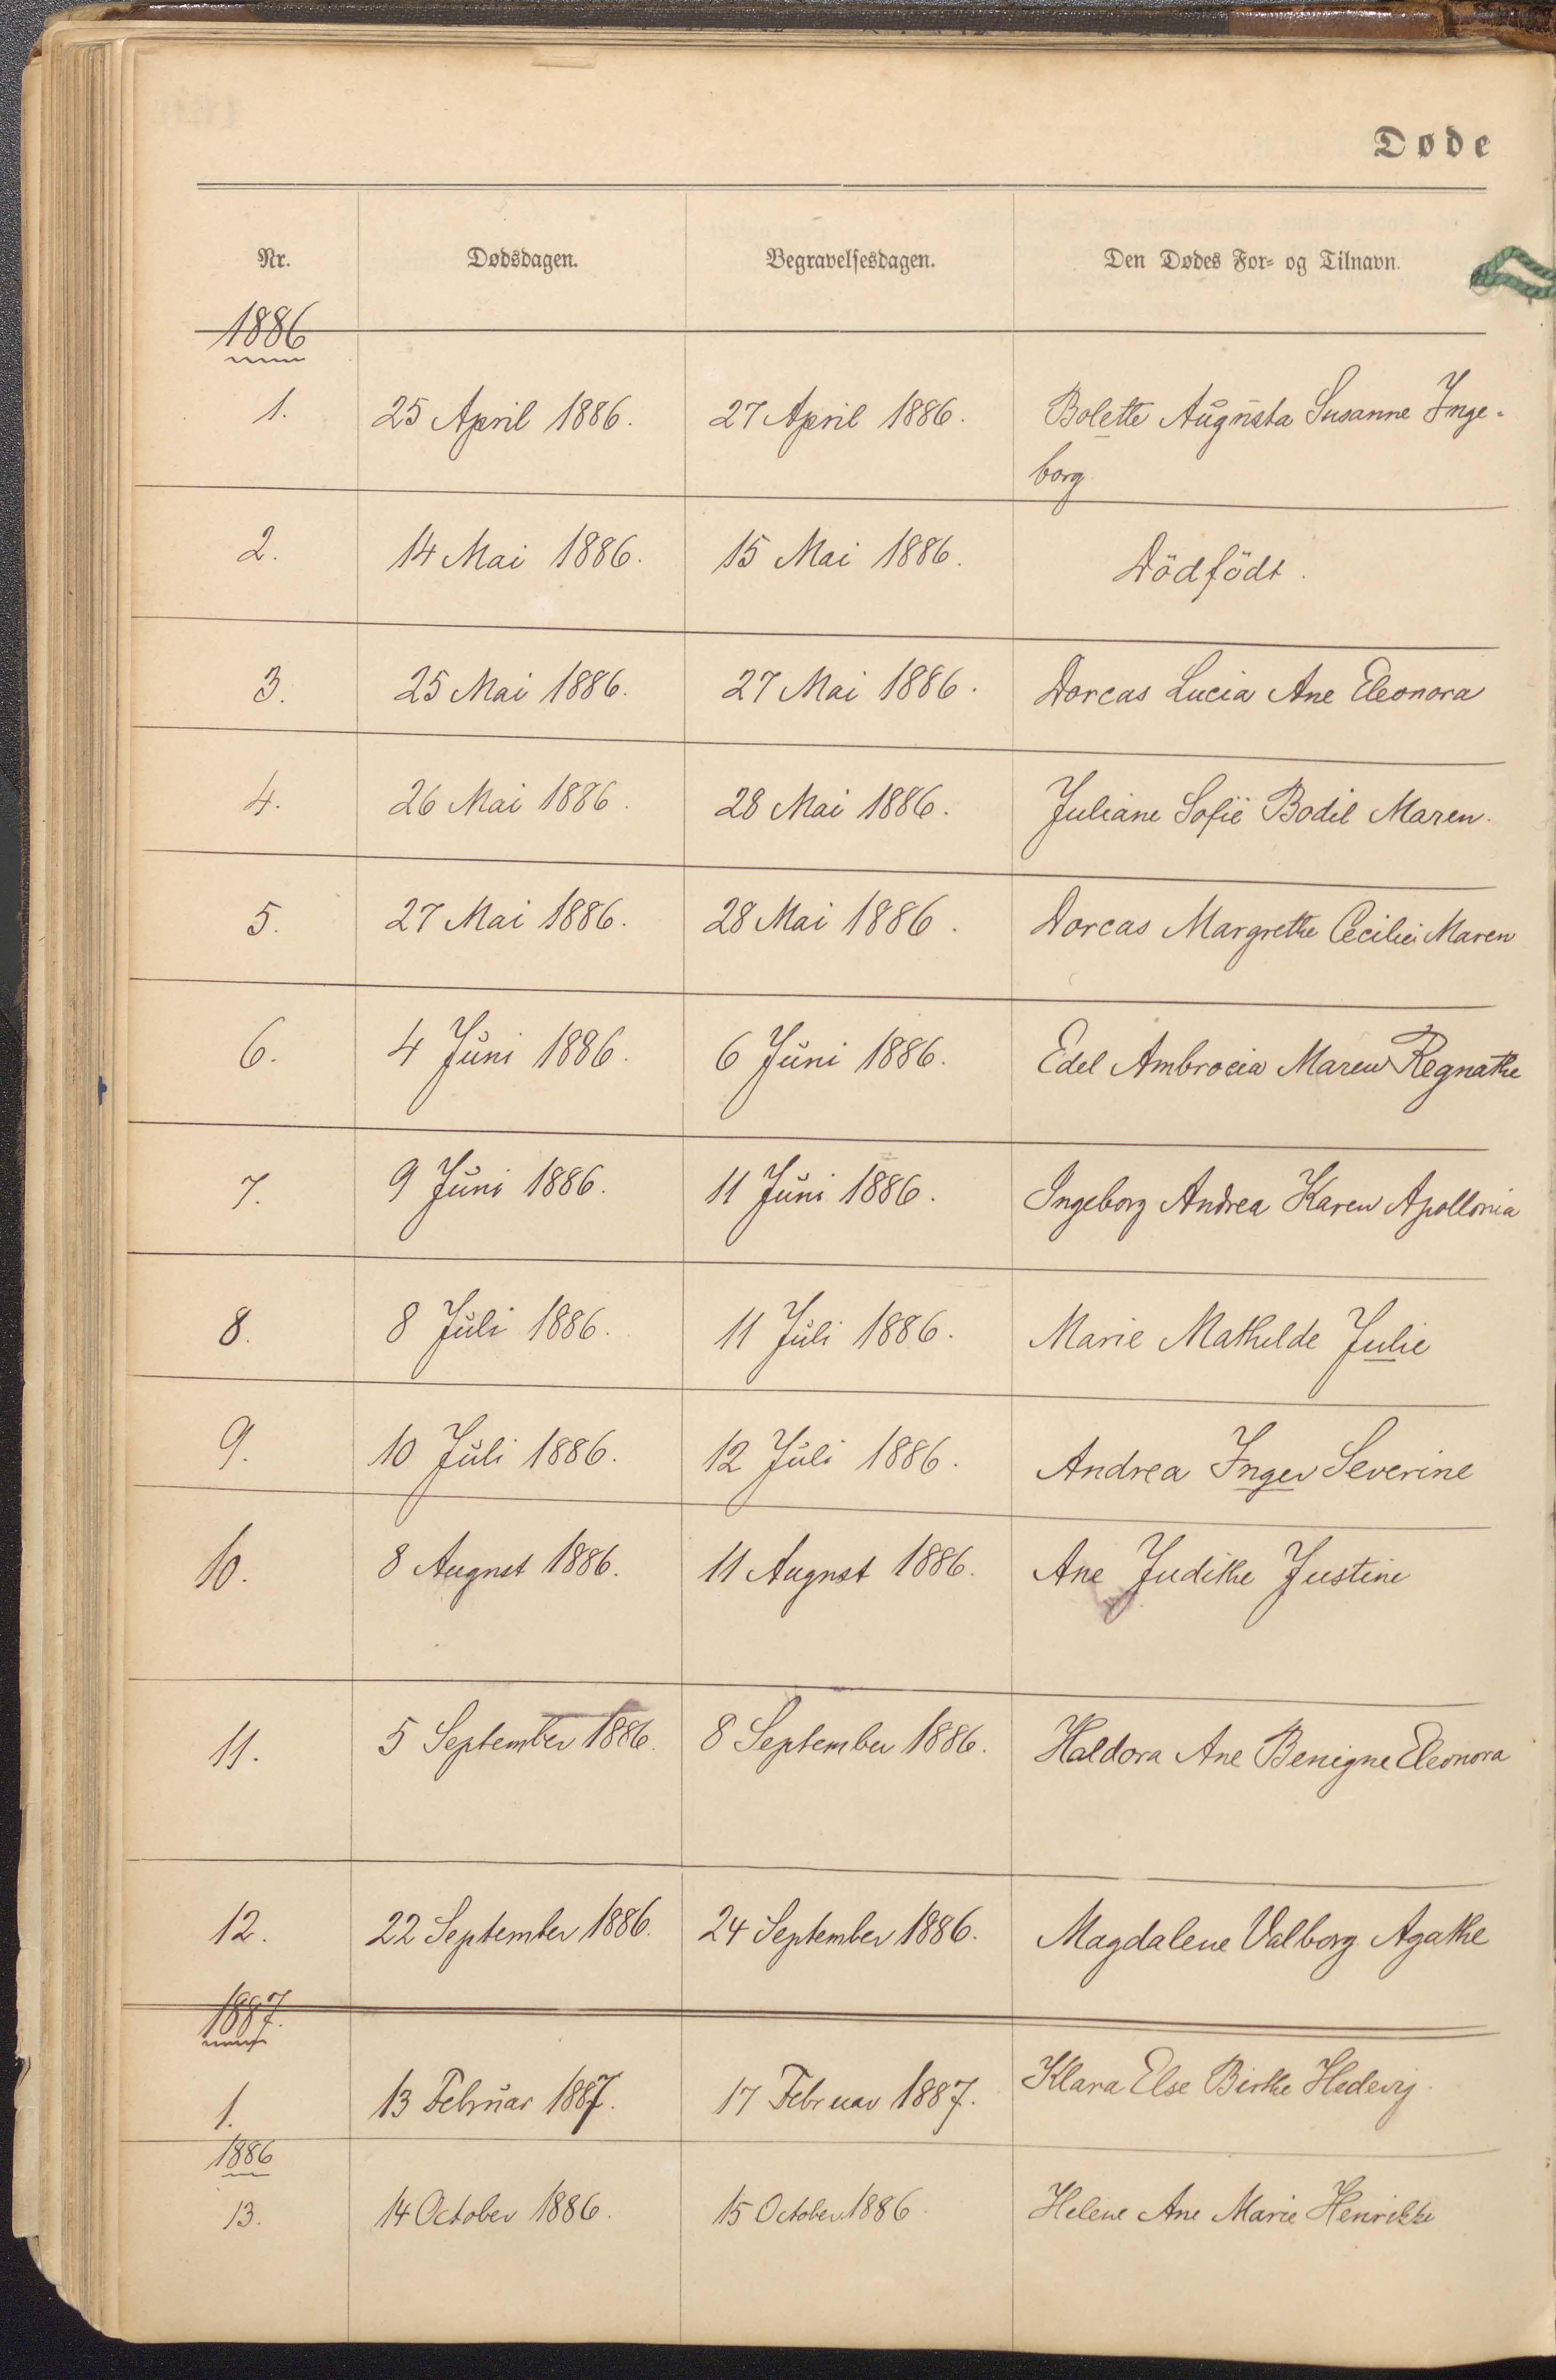 Døde
Nr. Dødsdagen. Begravelsesdagen. Den Dødes For= og Tilnavn.
1886
1. 25 April 1886. 27 April 1886. Bolette Augusta Susanne Inge=
borg
2. 14 Mai 1886. 15 Mai 1886. Dödfödt.
3. 25 Mai 1886. 27 Mai 1886. Dorcas Lucia Ane Eleonora
4. 26 Mai 1886. 28 Mai 1886. Juliane Sofie Bodil Maren.
5. 27 Mai 1886. 28 Mai 1886. Dorcas Margrethe Cecilie Maren
6. 4 Juni 1886. 6 Juni 1886. Edel Ambrocia Maren Regnathe
7. 9 Juni 1886. 11 Juni 1886. Ingeborg Andrea Karen Apollonia
8. 8 Juli 1886. 11 Juli 1886. Marie Mathilde Julie
9. 10 Juli 1886. 12 Juli 1886. Andrea Inger Severine
10. 8 August 1886. 11 August 1886. Ane Judithe Justine
11. 5 September 1886. 8 September 1886. Haldora Ane Benigne Eleonora
12. 22 September 1886. 24 September 1886. Magdalene Valborg Agathe
1887.
1. 13 Februar 1887. 17 Februar 1887. Klara Else Birthe Hedevig.
1886
13. 14 October 1886. 15 October 1886. Helene Ane Marie Henrikke